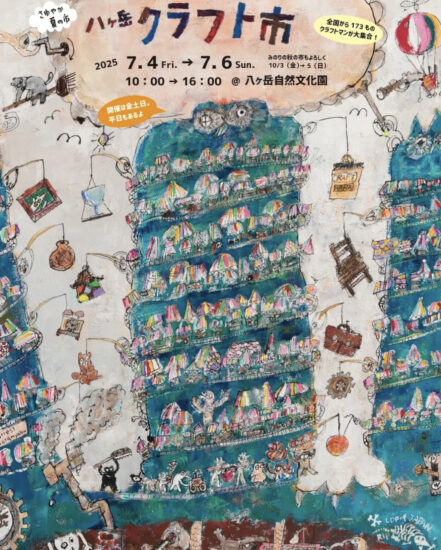 さわやか
夏の市
八ヶ岳 クラフト市
全国から173もの
クラフトマンが大集合！
2025 7.4 Fri. → 7.6 Sun.
みのりの秋の市もよろしく
10/3（金）→5（日）
10:00→16:00 @ 八ヶ岳自然文化園
開催は金土日。
平日もあるよ
LUPOP JAPAN